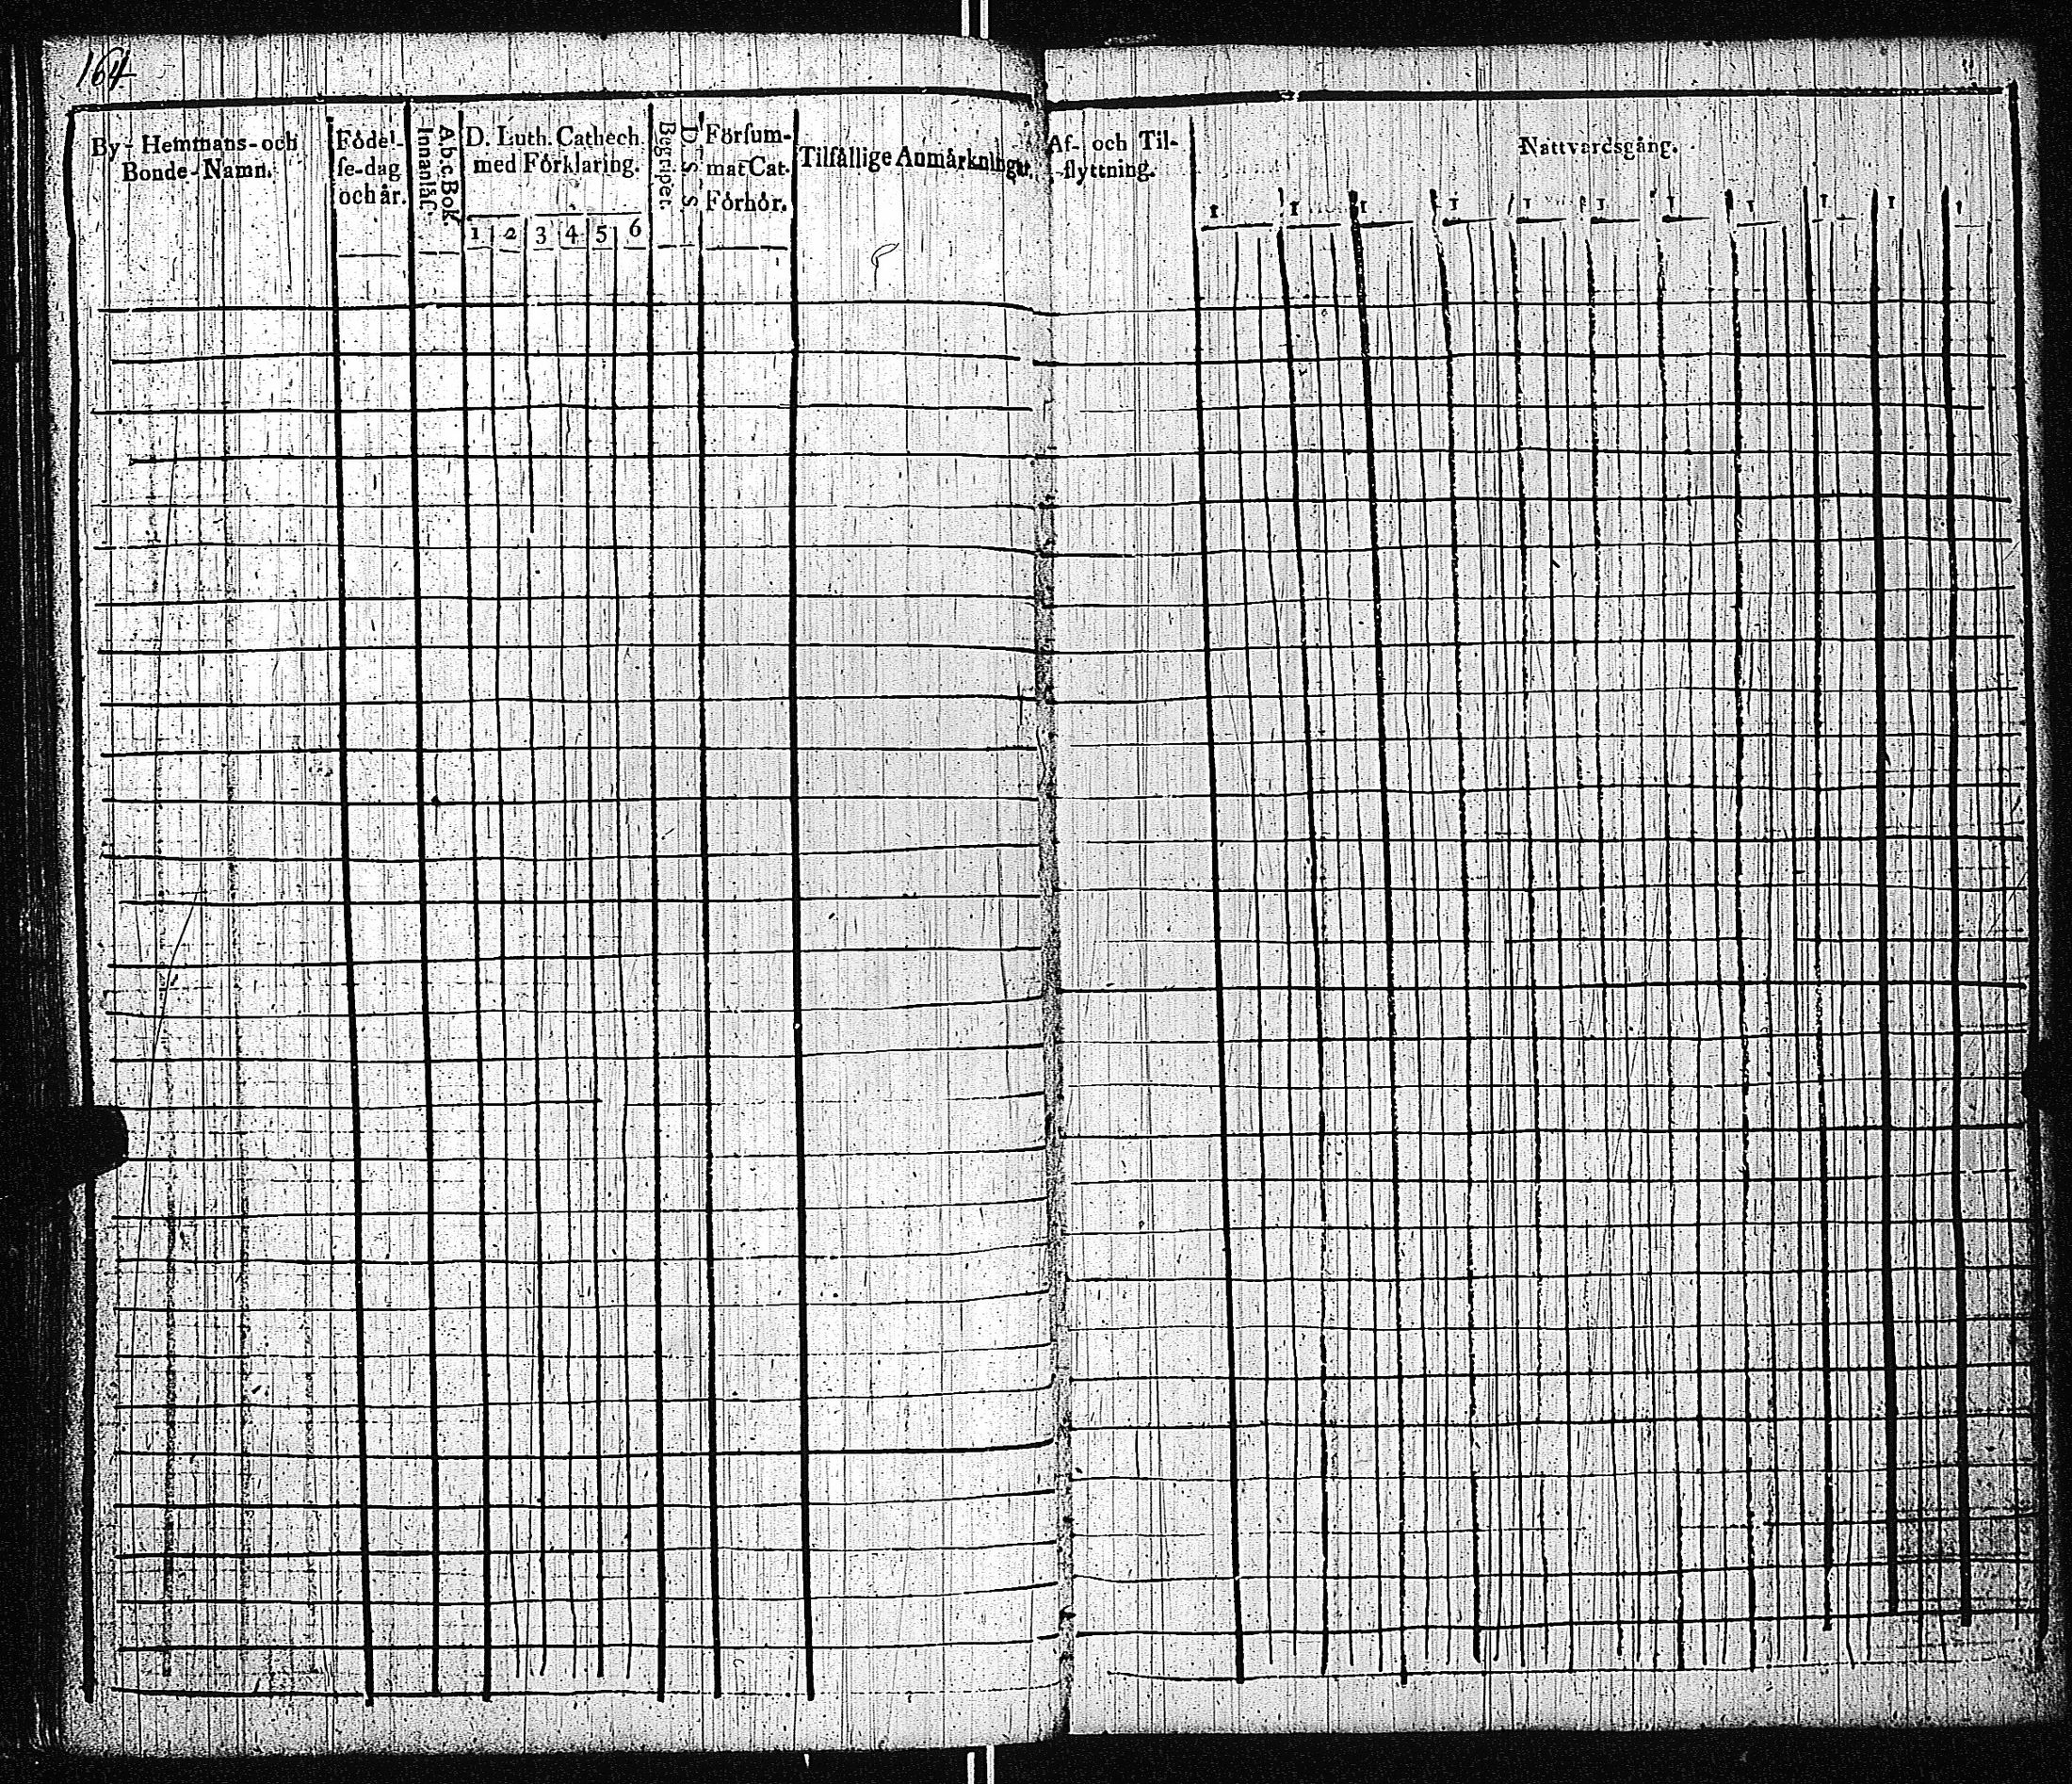 164
By- Hemmans- och
Bonde-Namn.
Födel-
se-dag
och år.
A.b.c.Bok.
Innanläs.
D. Luth. Cathech.
med Förklaring.
1 2 3 4 5 6
D. S. S.
Begripet.
Försum-
mat Cat.
Förhör.
Tilfällige Anmärkningar.
Af- och Til-
flyttning.
Nattvardsgång.
1 1 1 1 1 1 1 1 1 1 1